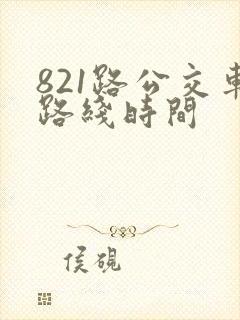 821路公交車
路綫時間
侯硯